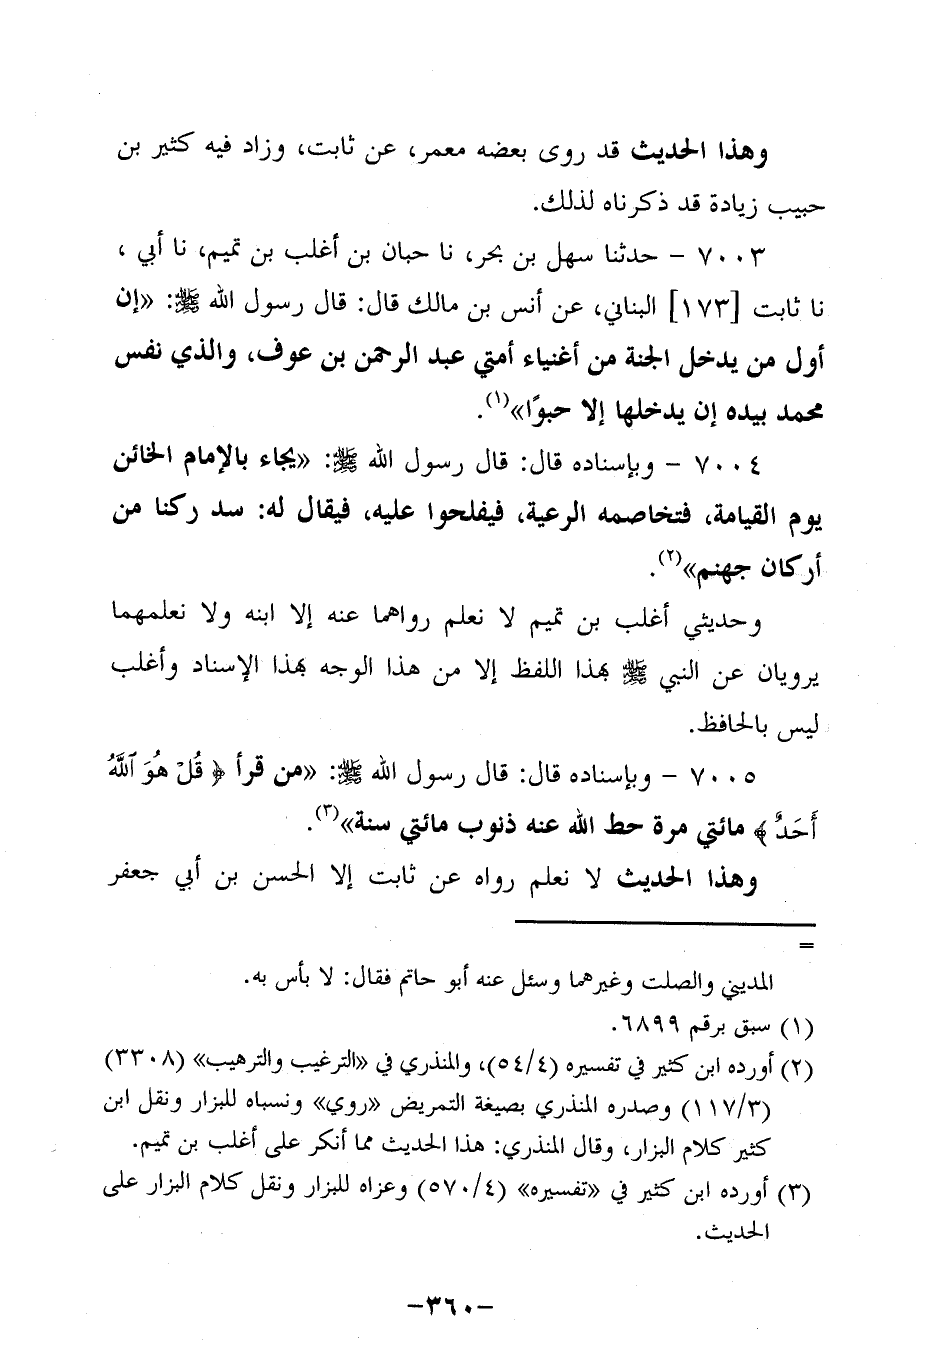 وهذا الحديث قد روى بعضه معمر، عن ثابت، وزاد فيه كثير بن
حبيب زيادة قد ذكرناه لذلك.
٧٠٠٣ - حدثنا سهل بن بحر، نا حبان بن أغلب بن تميم، نا أبي ،
نا ثابت [١٧٣] البناني، عن أنس بن مالك قال: قال رسول الله ﷺ: «إن
أول من يدخل الجنة من أغنياء أمتي عبد الرحمن بن عوف، والذي نفس
محمد بيده إن يدخلها إلا حبوًا»(١).
٧٠٠٤ - وبإسناده قال: قال رسول الله ﷺ: «يجاء بالإمام الخائن
يوم القيامة، فتخاصمه الرعية، فيفلحوا عليه، فيقال له: سد ركنا من
أركان جهنم»(٢).
وحديثي أغلب بن تميم لا نعلم رواهما عنه إلا ابنه ولا نعلمهما
يرويان عن النبي ﷺ بهذا اللفظ إلا من هذا الوجه بهذا الإسناد وأغلب
ليس بالحافظ.
٧٠٠٥ - وبإسناده قال: قال رسول الله ﷺ: «من قرأ ﴿ قُلْ هُوَ ٱللَّهُ
أَحَدٌ ﴾ مائتي مرة حط الله عنه ذنوب مائتي سنة»(٣).
وهذا الحديث لا نعلم رواه عن ثابت إلا الحسن بن أبي جعفر
=
المديني والصلت وغيرهما وسئل عنه أبو حاتم فقال: لا بأس به.
(١) سبق برقم ٦٨٩٩.
(٢) أورده ابن كثير في تفسيره (٥٤/٤)، والمنذري في «الترغيب والترهيب» (٣٣٠٨)
(١١٧/٣) وصدره المنذري بصيغة التمريض «روي» ونسباه للبزار ونقل ابن
كثير كلام البزار، وقال المنذري: هذا الحديث مما أنكر على أغلب بن تميم.
(٣) أورده ابن كثير في «تفسيره» (٥٧٠/٤) وعزاه للبزار ونقل كلام البزار على
الحديث.
-٣٦٠-